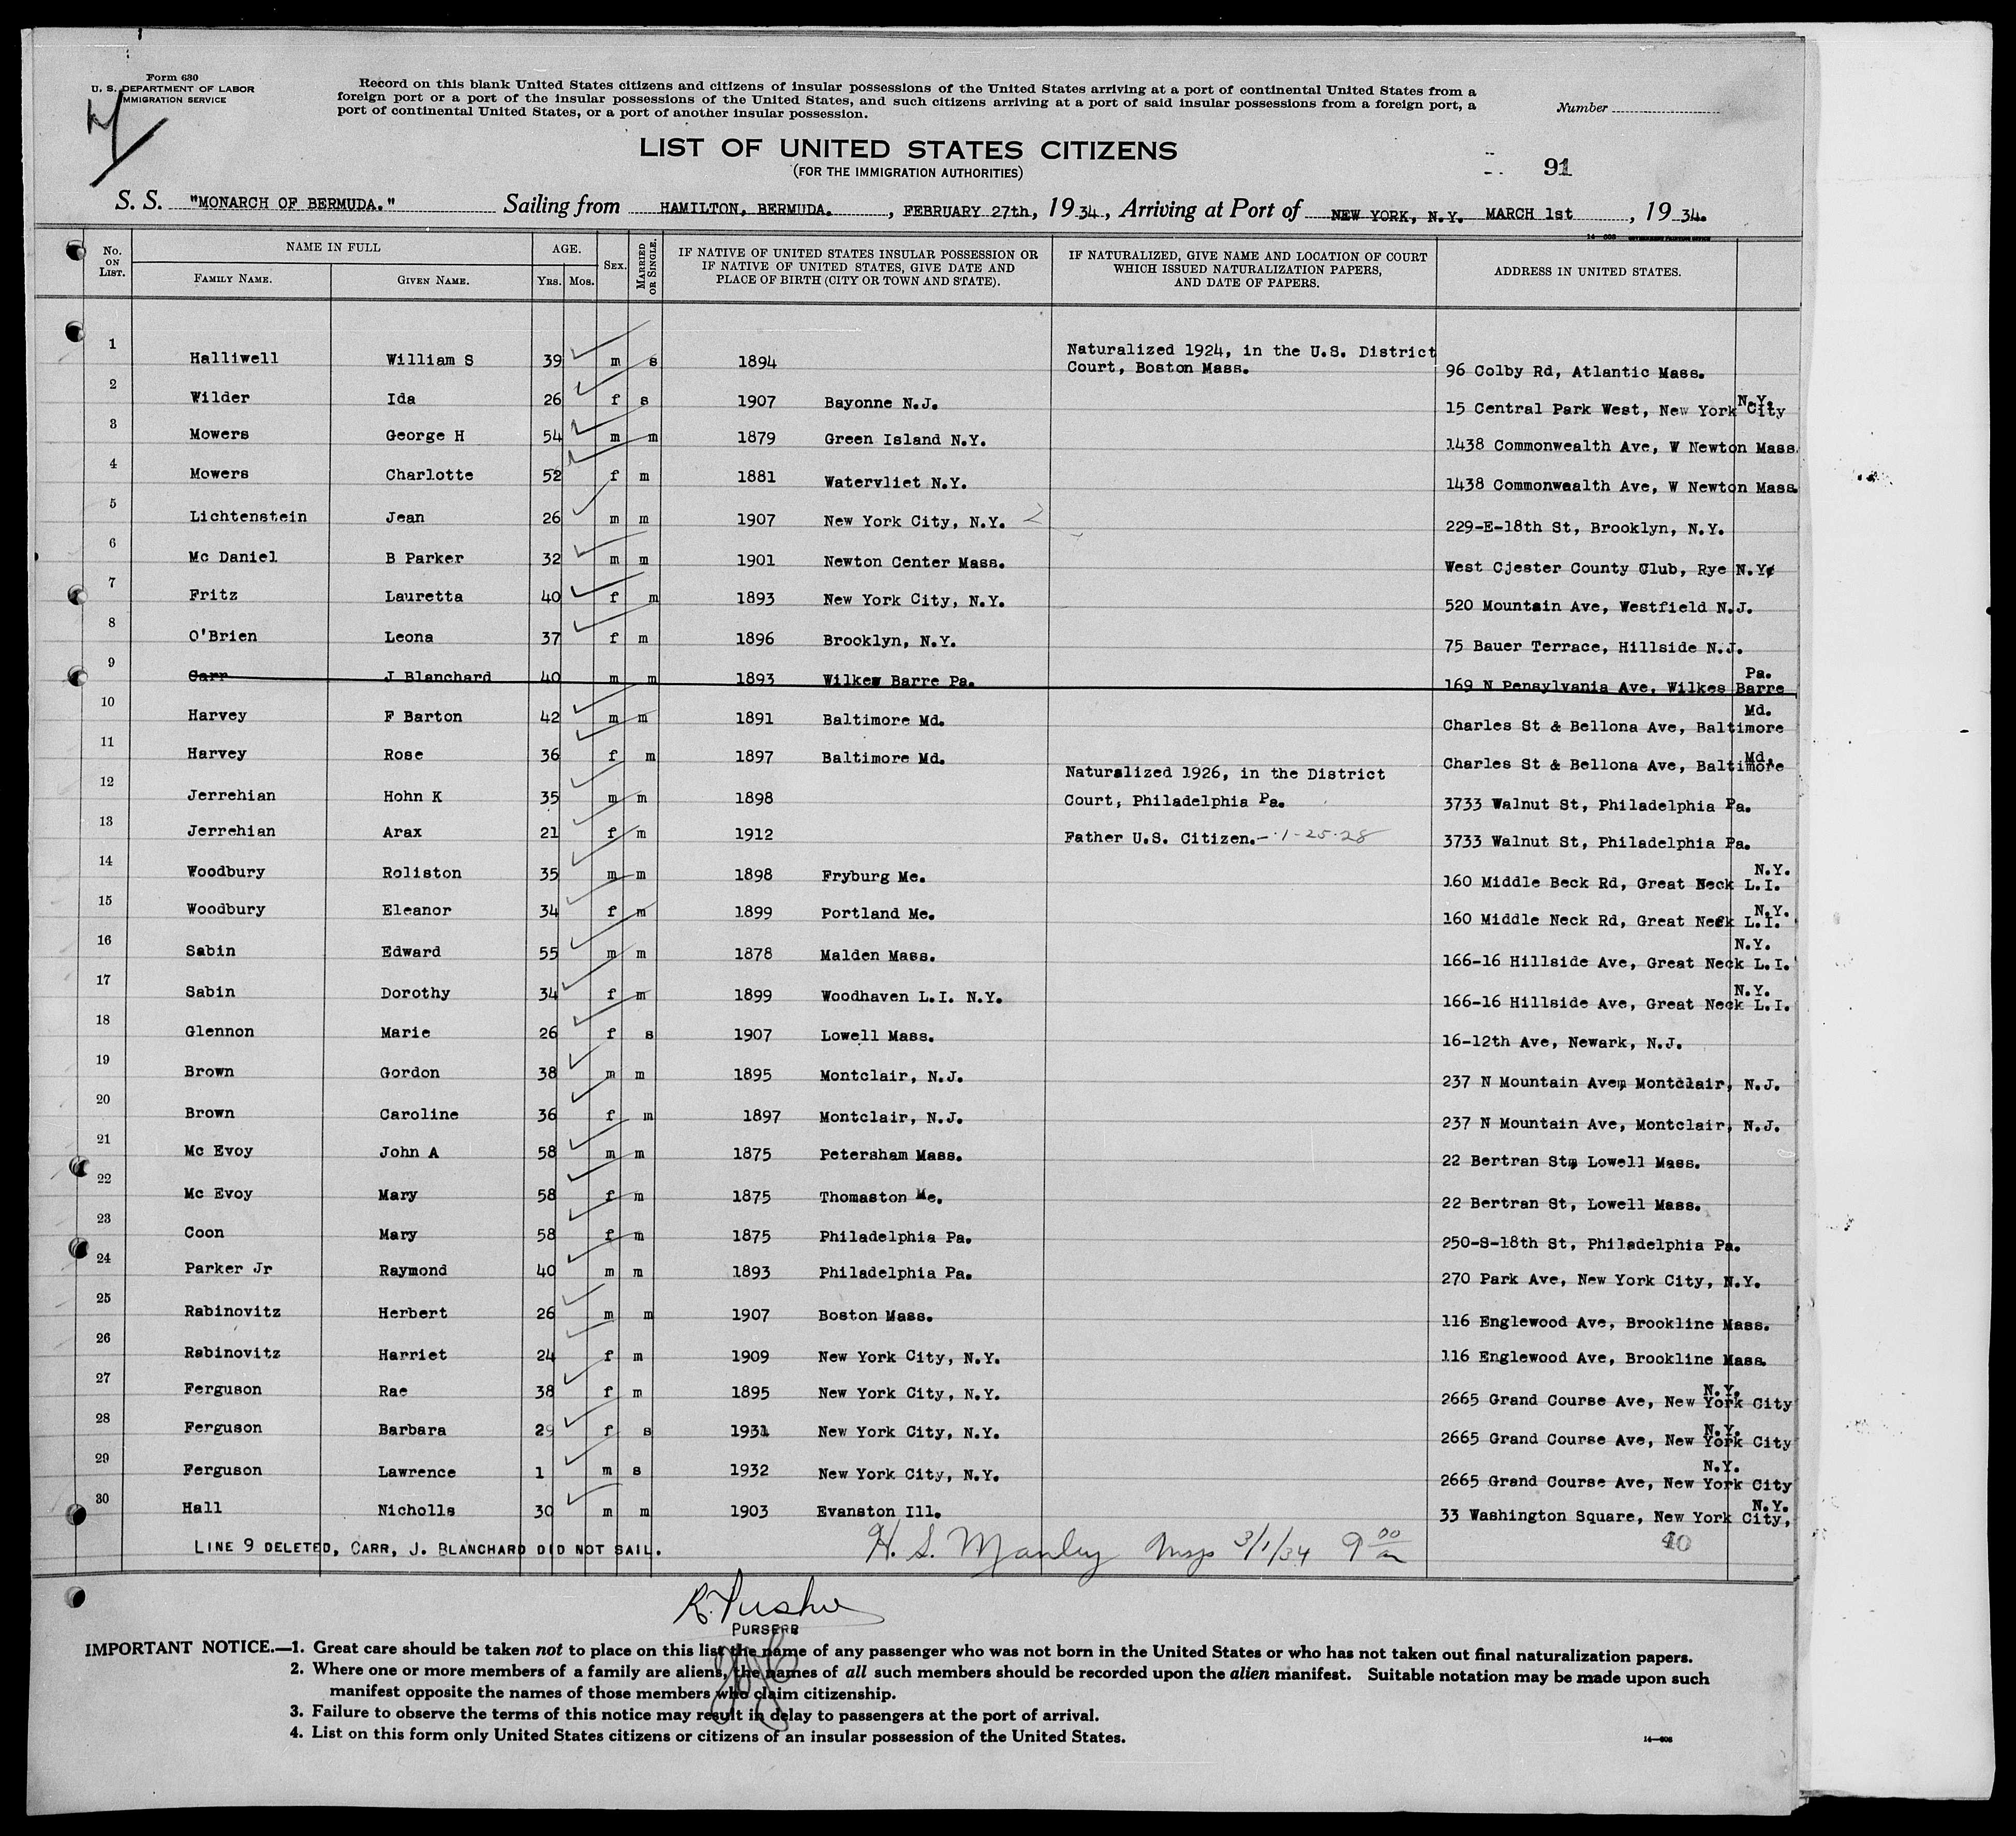 Form 630
U. S. DEPARTMENT OF LABOR
IMMIGRATION SERVICE
Record on this blank United States citizens and citizens of insular possessions of the United States arriving at a port of continental United States from a
foreign port or a port of the insular possessions of the United States, and such citizens arriving at a port of said insular possessions from a foreign port, a
port of continental United States, or a port of another insular possession.
Number
LIST OF UNITED STATES CITIZENS
(FOR THE IMMIGRATION AUTHORITIES)
91
S. S. "MONARCH OF BERMUDA." Sailing from HAMILTON, BERMUDA. , FEBRUARY 27th, 1934, Arriving at Port of NEW YORK, N.Y. MARCH 1st , 19 34.
No. ON LIST. NAME IN FULL FAMILY NAME. GIVEN NAME. AGE. YRS. MOS. SEX. MARRIED OR SINGLE. IF NATIVE OF UNITED STATES INSULAR POSSESSION OR IF NATIVE OF UNITED STATES, GIVE DATE AND PLACE OF BIRTH (CITY OR TOWN AND STATE). IF NATURALIZED, GIVE NAME AND LOCATION OF COURT WHICH ISSUED NATURALIZATION PAPERS, AND DATE OF PAPERS. ADDRESS IN UNITED STATES.
1 Halliwell William S 39 m s 1894 Naturalized 1924, in the U.S. District Court, Boston Mass. 96 Colby Rd, Atlantic Mass.
2 Wilder Ida 26 f s 1907 Bayonne N.J. 15 Central Park West, New York City N.Y.
3 Mowers George H 54 m m 1879 Green Island N.Y. 1438 Commonwealth Ave, W Newton Mass.
4 Mowers Charlotte 52 f m 1881 Watervliet N.Y. 1438 Commonwealth Ave, W Newton Mass.
5 Lichtenstein Jean 26 m m 1907 New York City, N.Y. 229-E-18th St, Brooklyn, N.Y.
6 Mc Daniel B Parker 32 m m 1901 Newton Center Mass. West Cjester County Club, Rye N.Y.
7 Fritz Lauretta 40 f m 1893 New York City, N.Y. 520 Mountain Ave, Westfield N.J.
8 O'Brien Leona 37 f m 1896 Brooklyn, N.Y. 75 Bauer Terrace, Hillside N.J.
9 Carr J Blanchard 40 m m 1893 Wilkes Barre Pa. 169 N Pensylvania Ave, Wilkes Barre Pa.
10 Harvey F Barton 42 m m 1891 Baltimore Md. Charles St & Bellona Ave, Baltimore Md.
11 Harvey Rose 36 f m 1897 Baltimore Md. Charles St & Bellona Ave, Baltimore Md.
12 Jerrehian Hohn K 35 m m 1898 Naturalized 1926, in the District Court, Philadelphia Pa. 3733 Walnut St, Philadelphia Pa.
13 Jerrehian Arax 21 f m 1912 Father U.S. Citizen.- 1-25-28 3733 Walnut St, Philadelphia Pa.
14 Woodbury Roliston 35 m m 1898 Fryburg Me. 160 Middle Beck Rd, Great Neck L.I. N.Y.
15 Woodbury Eleanor 34 f m 1899 Portland Me. 160 Middle Neck Rd, Great Neck L.I. N.Y.
16 Sabin Edward 55 m m 1878 Malden Mass. 166-16 Hillside Ave, Great Neck L.I. N.Y.
17 Sabin Dorothy 34 f m 1899 Woodhaven L.I. N.Y. 166-16 Hillside Ave, Great Neck L.I. N.Y.
18 Glennon Marie 26 f s 1907 Lowell Mass. 16-12th Ave, Newark, N.J.
19 Brown Gordon 38 m m 1895 Montclair, N.J. 237 N Mountain Ave, Montclair, N.J.
20 Brown Caroline 36 f m 1897 Montclair, N.J. 237 N Mountain Ave, Montclair, N.J.
21 Mc Evoy John A 58 m m 1875 Petersham Mass. 22 Bertran St, Lowell Mass.
22 Mc Evoy Mary 58 f m 1875 Thomaston Me. 22 Bertran St, Lowell Mass.
23 Coon Mary 58 f m 1875 Philadelphia Pa. 250-S-18th St, Philadelphia Pa.
24 Parker Jr Raymond 40 m m 1893 Philadelphia Pa. 270 Park Ave, New York City, N.Y.
25 Rabinovitz Herbert 26 m m 1907 Boston Mass. 116 Englewood Ave, Brookline Mass.
26 Rabinovitz Harriet 24 f m 1909 New York City, N.Y. 116 Englewood Ave, Brookline Mass.
27 Ferguson Rae 38 f m 1895 New York City, N.Y. 2665 Grand Course Ave, New York City N.Y.
28 Ferguson Barbara 29 f s 1931 New York City, N.Y. 2665 Grand Course Ave, New York City N.Y.
29 Ferguson Lawrence 1 m s 1932 New York City, N.Y. 2665 Grand Course Ave, New York City N.Y.
30 Hall Nicholls 30 m m 1903 Evanston Ill. 33 Washington Square, New York City, N.Y.
LINE 9 DELETED, CARR, J. BLANCHARD DID NOT SAIL. H. S. Manley 3/1/34 9 00 am
PURSER
IMPORTANT NOTICE.—1. Great care should be taken not to place on this list the name of any passenger who was not born in the United States or who has not taken out final naturalization papers.
2. Where one or more members of a family are aliens, the names of all such members should be recorded upon the alien manifest. Suitable notation may be made upon such
manifest opposite the names of those members who claim citizenship.
3. Failure to observe the terms of this notice may result in delay to passengers at the port of arrival.
4. List on this form only United States citizens or citizens of an insular possession of the United States.